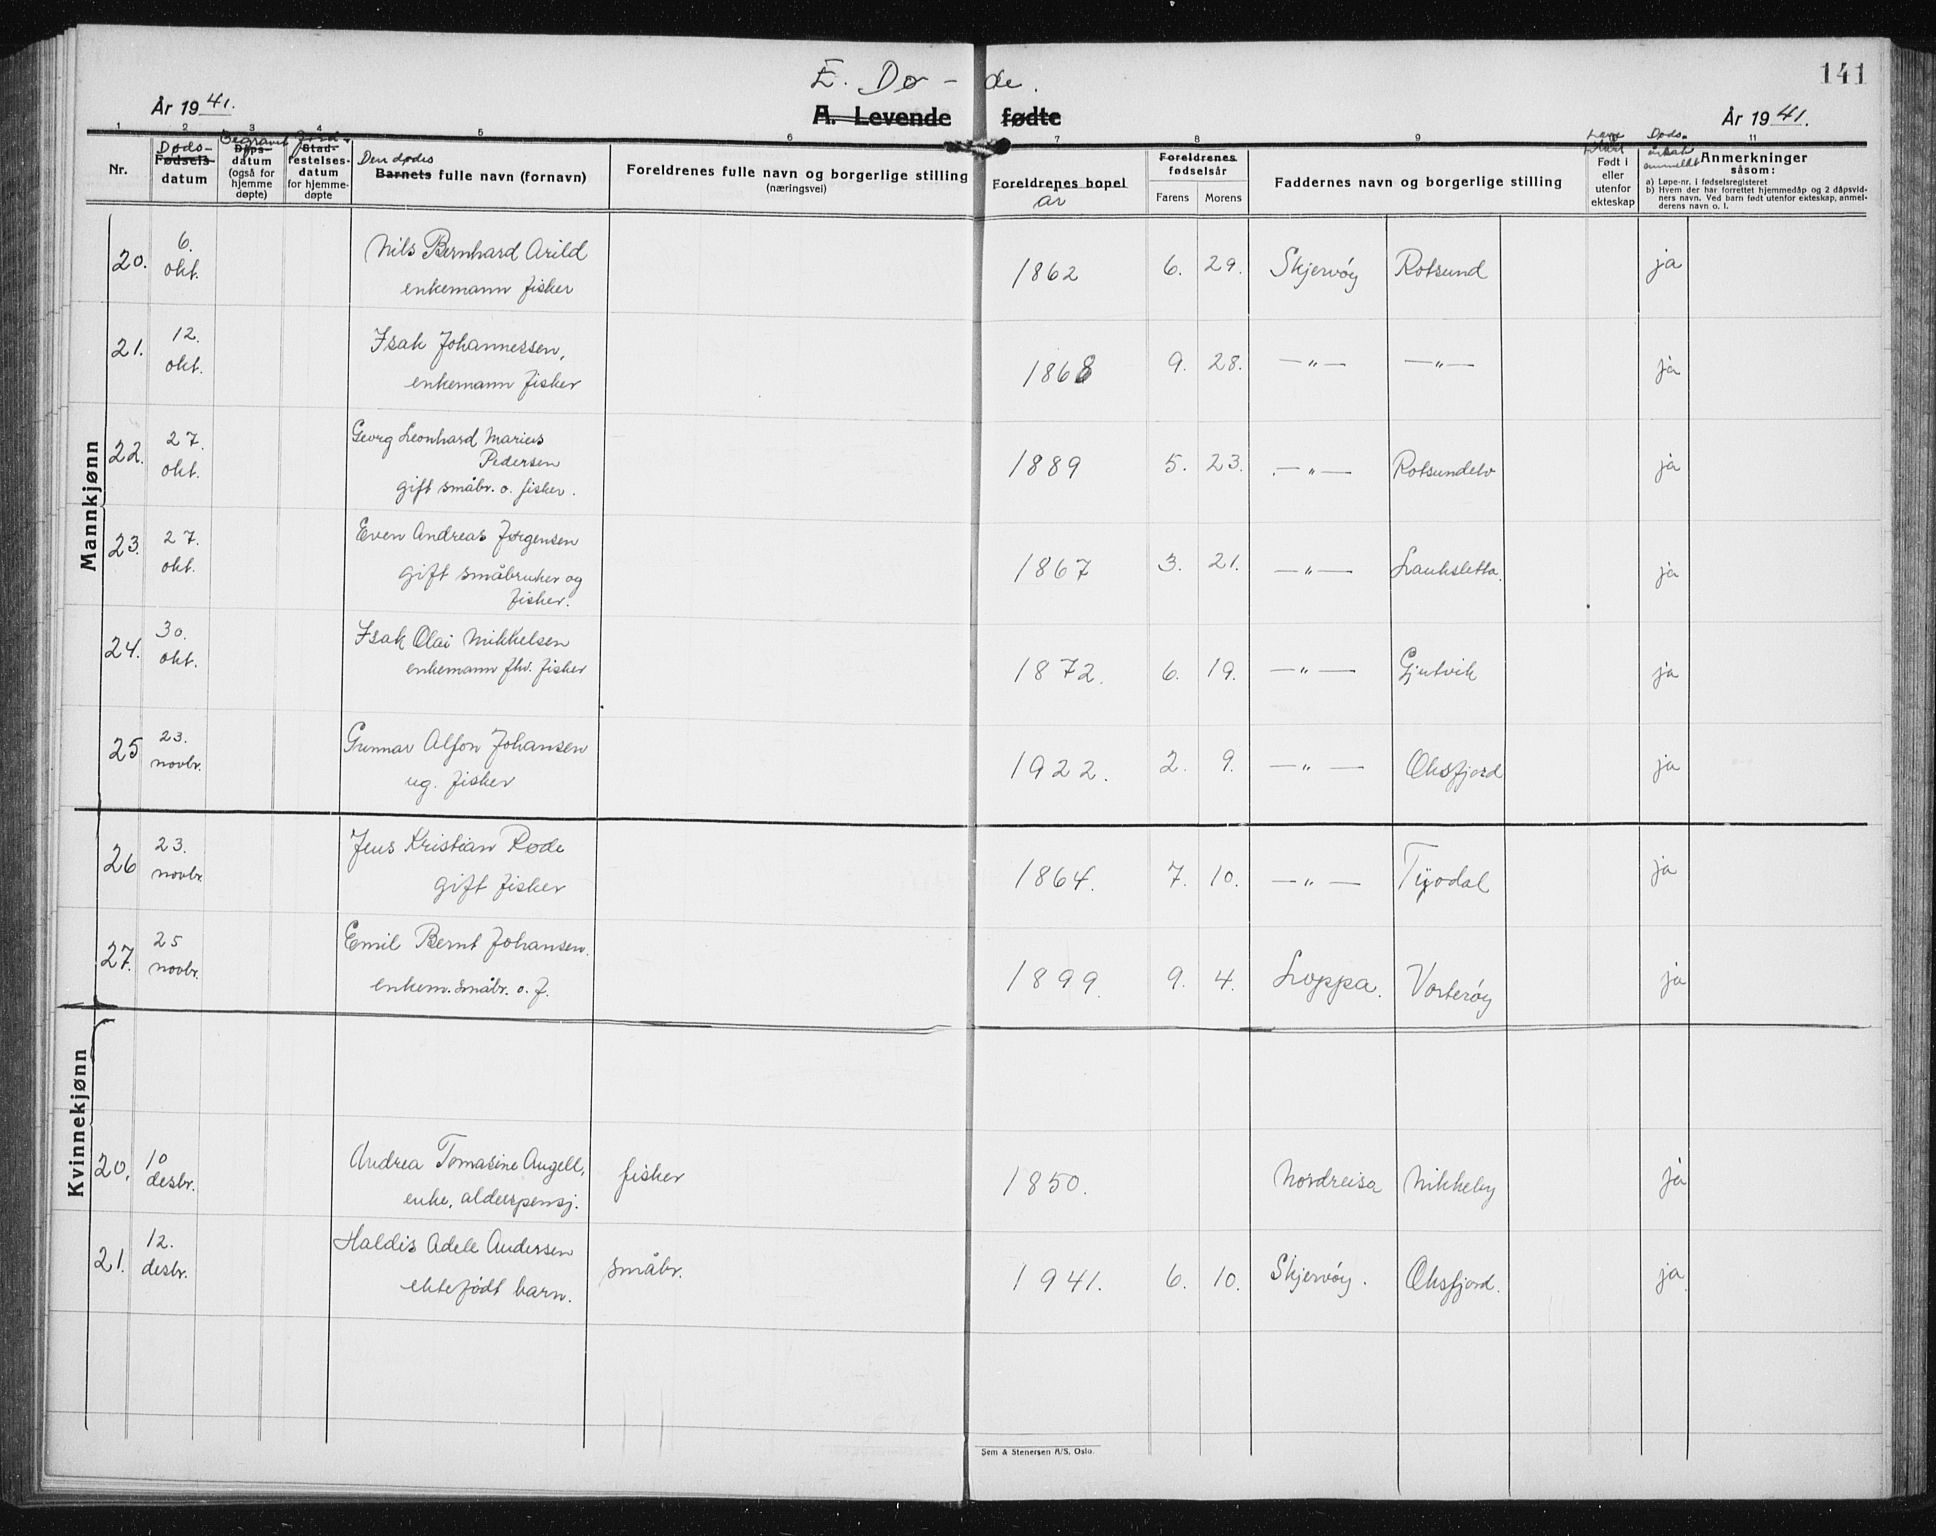 141
E. Dø - de.
År 19 41.
A. Levende fødte
År 19 41.
1 2 3 4 5 6 7 8 9 11
Nr.
Døds-
Fødsels
datum
Begravet
Dåps-
datum
(også for
hjemme
døpte)
Jord-
Stad-
festelses-
datum
for hjemme-
døpte
Den dødes
Barnets fulle navn (fornavn)
Foreldrenes fulle navn og borgerlige stilling
(næringsvei)
Foreldrenes bopel
år
Foreldrenes
fødselsår
Farens Morens
Faddernes navn og borgerlige stilling
Født i
eller
utenfor
ekteskap
Døds-
årsak
anmeldt
Anmerkninger
såsom:
a) Løpe-nr. i fødselsregisteret
b) Hvem der har forrettet hjemmedåp og 2 dåpsvid-
ners navn. Ved barn født utenfor ekteskap, anmel-
derens navn o. l.
Mannkjønn
20. 6. okt. Nils Bernhard Arild 1862 6. 29. Skjervøy Rotsund ja
enkemann fisker
21. 12. okt. Isak Johannessen, 1868 9. 28. —"— —"— ja
enkemann fisker
22. 27. okt. Georg Leonhard Marius
Pedersen 1889 5. 23. —"— Rotsundelv ja
gift småbr. o. fisker.
23. 27. okt. Even Andreas Jørgensen 1867 3. 21. —"— Lauksletta. ja
gift småbruker og
fisker.
24. 30. okt. Isak Olai Mikkelsen 1872. 6. 19. —"— Gjutvik ja
enkemann fhv. fisker
25 23. novbr. Gunnar Alfon Johansen 1922. 2. 9. —"— Oksfjord ja
ug. fisker
26 23. novbr. Jens Kristian Rode 1864. 7. 10. —"— ja
gift fisker
27. 25 novbr. Emil Bernt Johansen. 1899. 9. 4. Loppa. Vorterøy ja
enkem. småbr. o. f.
Kvinnekjønn
20. 10 desbr. Andrea Tomasine Angell, fisker 1850. Nordreisa Nikkeby ja
enke, alderspensj.
21. 12. desbr. Haldis Adele Andersen småbr. 1941. 6. 10. Skjervøy. Oksfjord. ja
ektefødt barn.
Sem & Stenersen A/S, Oslo.